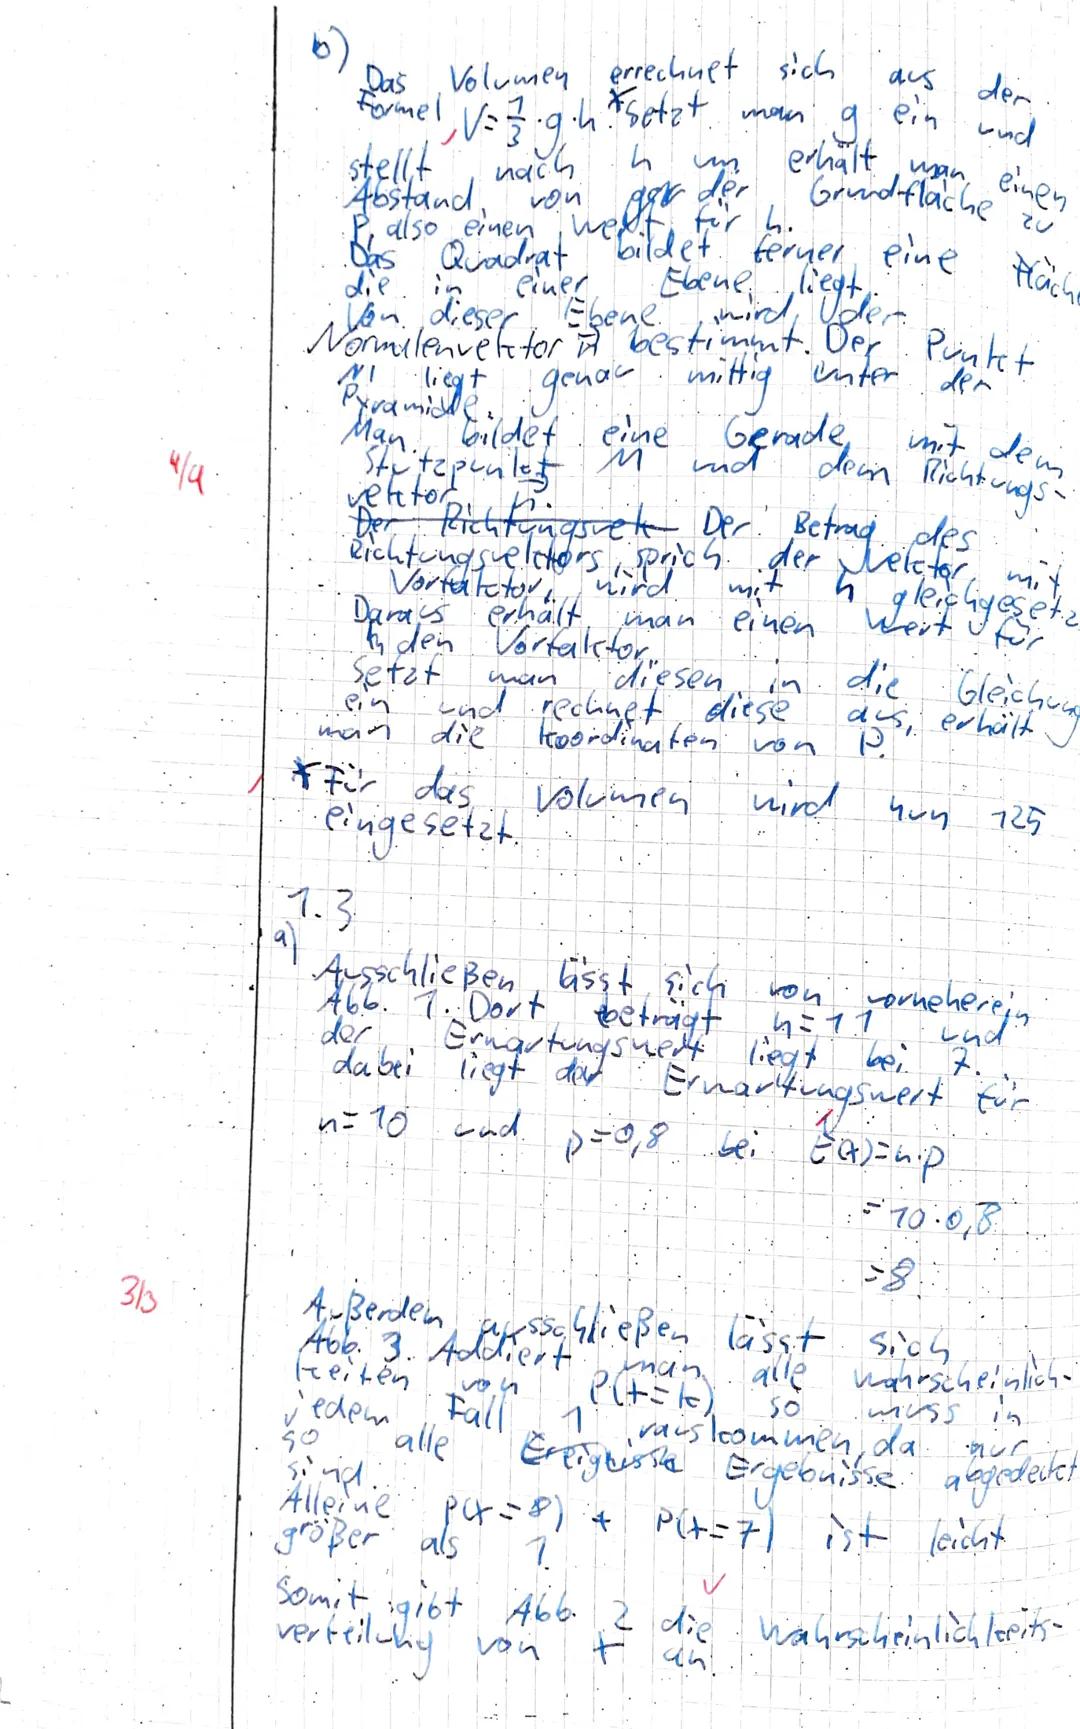 b)
Das Volumen errechnet sich aus der
Formel, V = 1/3 · g · h. * Setzt man g ein und
stellt nach h um erhält man einen
Abstand von der Grundfläche zu
P, also einen Wert für h.
Das Quadrat bildet ferner eine Fläche
die in einer Ebene liegt.
Von dieser Ebene wird der
Normalenvektor n⃗ bestimmt. Der Punkt
M liegt genau mittig unter der
Pyramide.
Man bildet eine Gerade mit dem
Stützpunkt M und dem Richtungs-
vektor n⃗.
4/4
Der Richtungsvek Der Betrag des
Richtungsvektors, sprich der Vektor mit
Vorfaktor, wird mit h gleichgesetz
Daraus erhält man einen Wert für
den Vorfaktor.
Setzt man diesen in die Gleichung
ein und rechnet diese aus, erhält
man die Koordinaten von P.
* Für das Volumen wird nun 125
eingesetzt.
1.3
a)
Ausschließen lässt sich von vorneherein
Abb. 1. Dort beträgt n=11 und
der Erwartungswert liegt bei 7.
dabei liegt der Erwartungswert für
n=10 und p=0,8 bei E(x)=n·p
=10·0,8
=8
3/3
Außerdem ausschließen lässt sich
Abb. 3. Addiert man alle Wahrscheinlich-
keiten von P(x=k) so muss in
jedem Fall 1 rauskommen, da nur
so alle Ereignisse Ergebnisse abgedeckt
sind.
Alleine P(x=8) + P(x=7) ist leicht
größer als 1.
Somit gibt Abb. 2 die Wahrscheinlichkeits-
verteilung von x an.